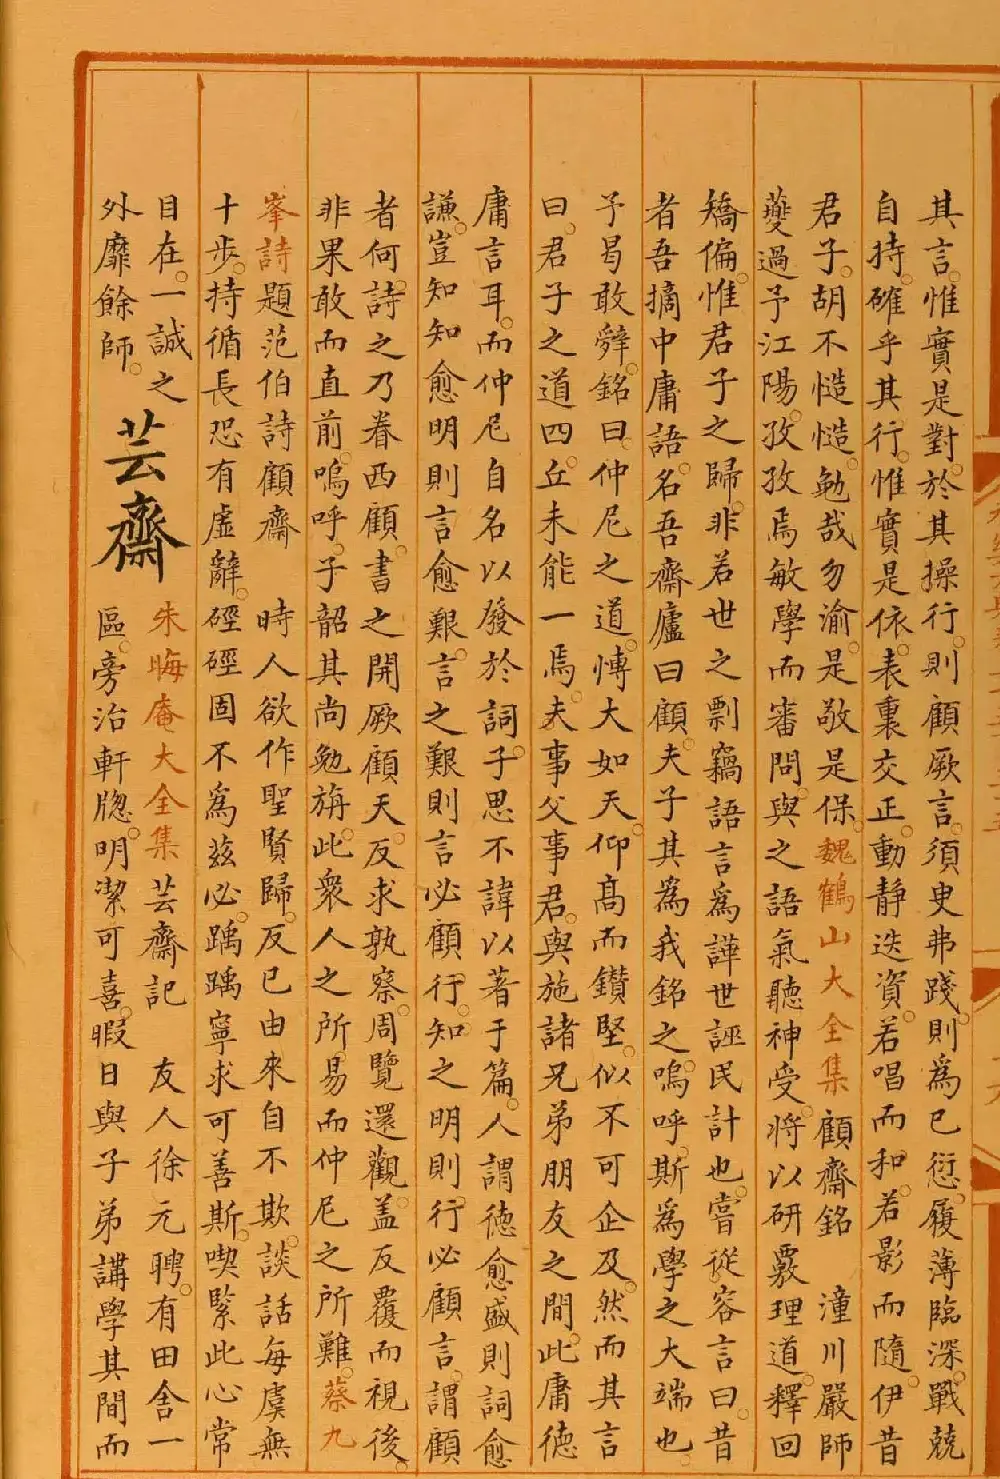 其言。惟實是對。於其操行。則顧厥言。須臾弗踐。則為已愆。履薄臨深。戰兢
自持。確乎其行。惟實是依。表裏交正。動静迭資。若唱而和。若影而隨。伊昔
君子。胡不慥慥。勉哉勿渝。是敬是保。魏鶴山大全集 顧齋銘 潼川嚴師
夔過予江陽。孜孜焉敏學而審問。與之語。氣聽神受。將以研覈理道。釋回
矯偏。惟君子之歸。非若世之剽竊語言為譁世誣民計也。嘗從容言曰。昔
者吾摘中庸語。名吾齋廬曰顧。夫子其為我銘之。嗚呼。斯為學之大端也。
予曷敢辤。銘曰。仲尼之道。慱大如天。仰高而鑚堅。似不可企及。然而其言
曰。君子之道四。丘未能一焉。夫事父事君。與施諸兄弟朋友之間。此庸德
庸言耳。而仲尼自名以發於詞。子思不諱以著于篇。人謂德愈盛則詞愈
謙。豈知知愈明則言愈艱。言之艱則言必顧行。知之明則行必顧言。謂顧
者何。詩之乃眷西顧。書之開厥顧天。反求孰察。周覽還觀。盖反覆而視後。
非果敢而直前。嗚呼。子韶其尚勉旃。此衆人之所易。而仲尼之所難。蔡九
峯詩題范伯詩顧齋 時人欲作聖賢歸。反已由來自不欺。談話每虞無
十步。持循長恐有虚辭。硜硜固不為兹必。踽踽寧求可善斯。喫緊此心常
目在。一誠之
外靡餘師。
芸齋
朱晦庵大全集 芸齋記 友人徐元聘。有田舎一
區。旁治軒牎。明潔可喜。暇日與子弟講學其間。而